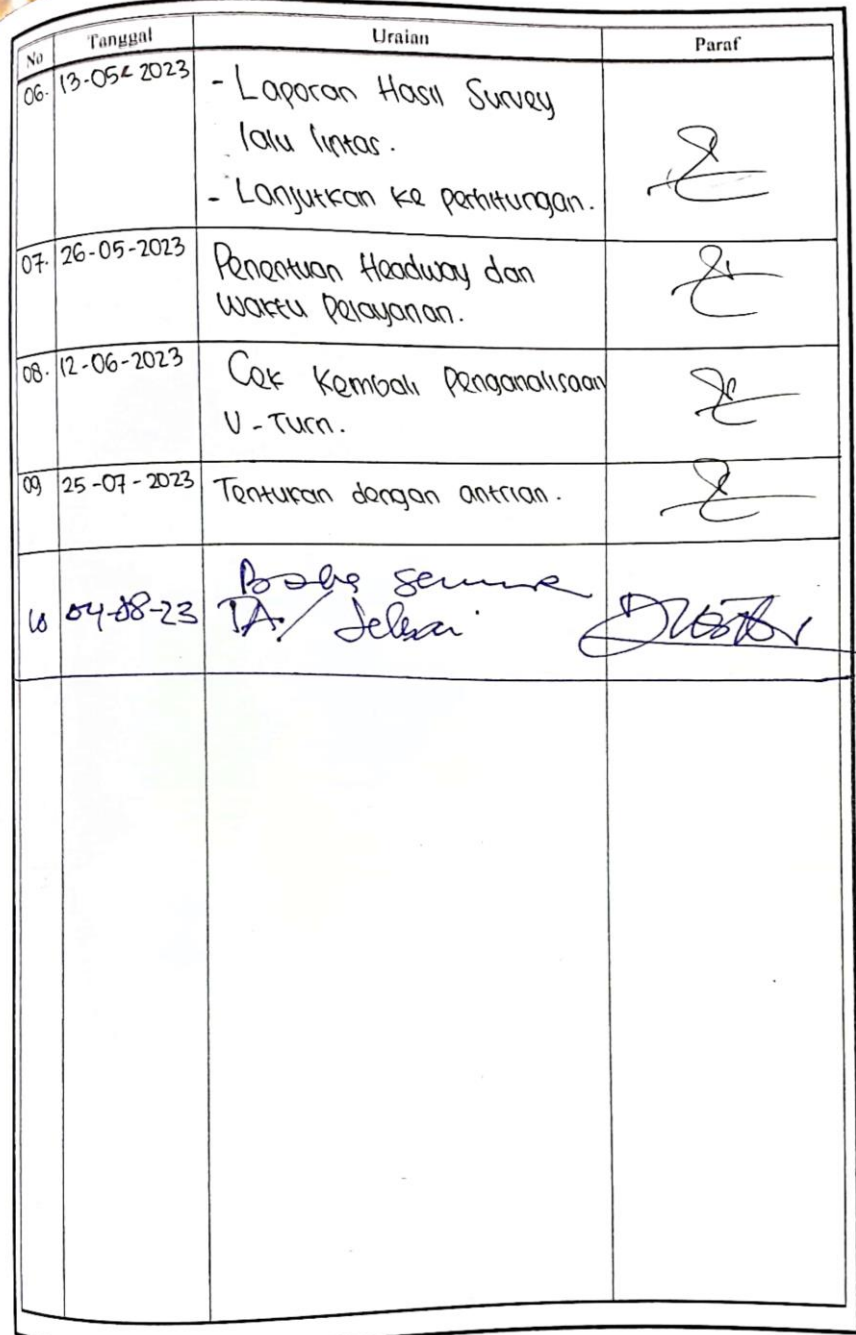 No Tanggal Uraian Paraf
06. 13-05-2023 - Laporan Hasil Survey
lalu lintas.
- Lanjutkan ke perhitungan.
07. 26-05-2023 Penentuan Headway dan
Waktu Pelayanan.
08. 12-06-2023 Cek Kembali Penganalisaan
U-Turn.
09 25-07-2023 Tentukan dengan antrian.
10 04-08-23
TA/ Selesai